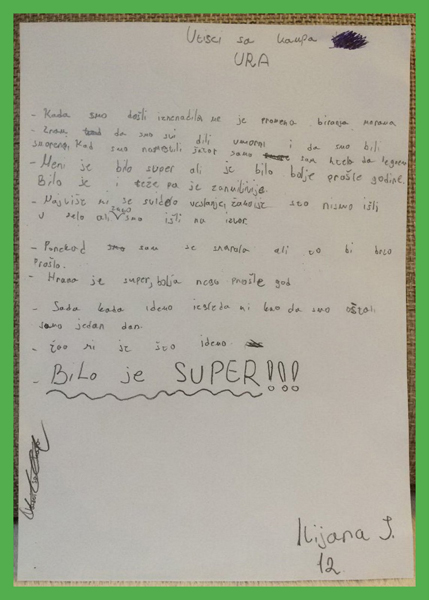 Utisci sa kampa
URA
- Kada smo došli iznenadila me je promena biranja
- da smo svi bili umorni i da smo bili
smoreni, kad smo napravili šator samo sam htela da legnem.
- Meni je bilo super ali je bilo bolje prošle godine.
Bilo je i teže pa je zanimljivije.
- Najviše mi se svidelo veslanje, žao je što nismo išli
u selo ali smo išli na izvor.
- Ponekad smo sam se smorila ali to bi brzo
prošlo.
- Hrana je super, bolja nego prošle god
- Sada kada idemo izgleda mi kao da smo ostali
samo jedan dan.
- žao mi je što idemo.
- BiLo je SUPER!!!
Ilijana J.
12.